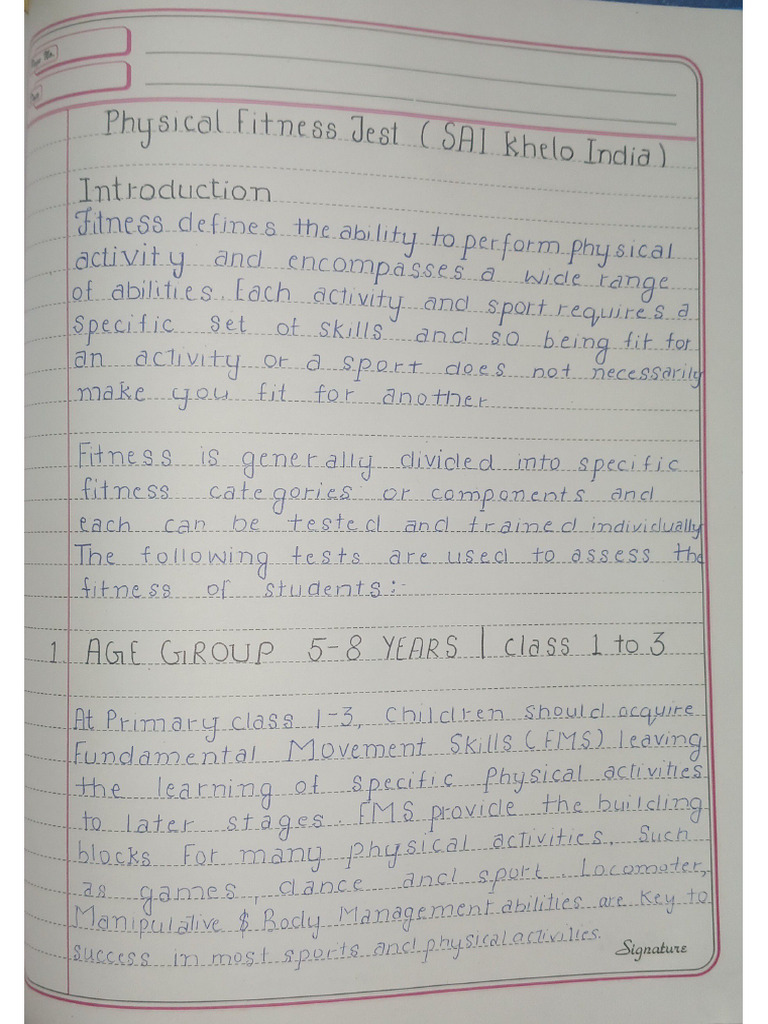 Page No.
Date
Physical Fitness Test (SAI Khelo India)
Introduction
Fitness defines the ability to perform physical
activity and encompasses a wide range
of abilities. Each activity and sport requires a
specific set of skills and so being fit for
an activity or a sport does not necessarily
make you fit for another
Fitness is generally divided into specific
fitness categories or components and
each can be tested and trained individually
The following tests are used to assess the
fitness of students:-
1. AGE GROUP 5-8 YEARS | class 1 to 3
At Primary class 1-3, Children should acquire
Fundamental Movement Skills (FMS) leaving
the learning of specific Physical activities
to later stages. FMS provide the building
blocks For many physical activities, Such
as games, dance and sport. Locomoter,
Manipulative & Body Management abilities are key to
success in most sports and physical activities.
Signature